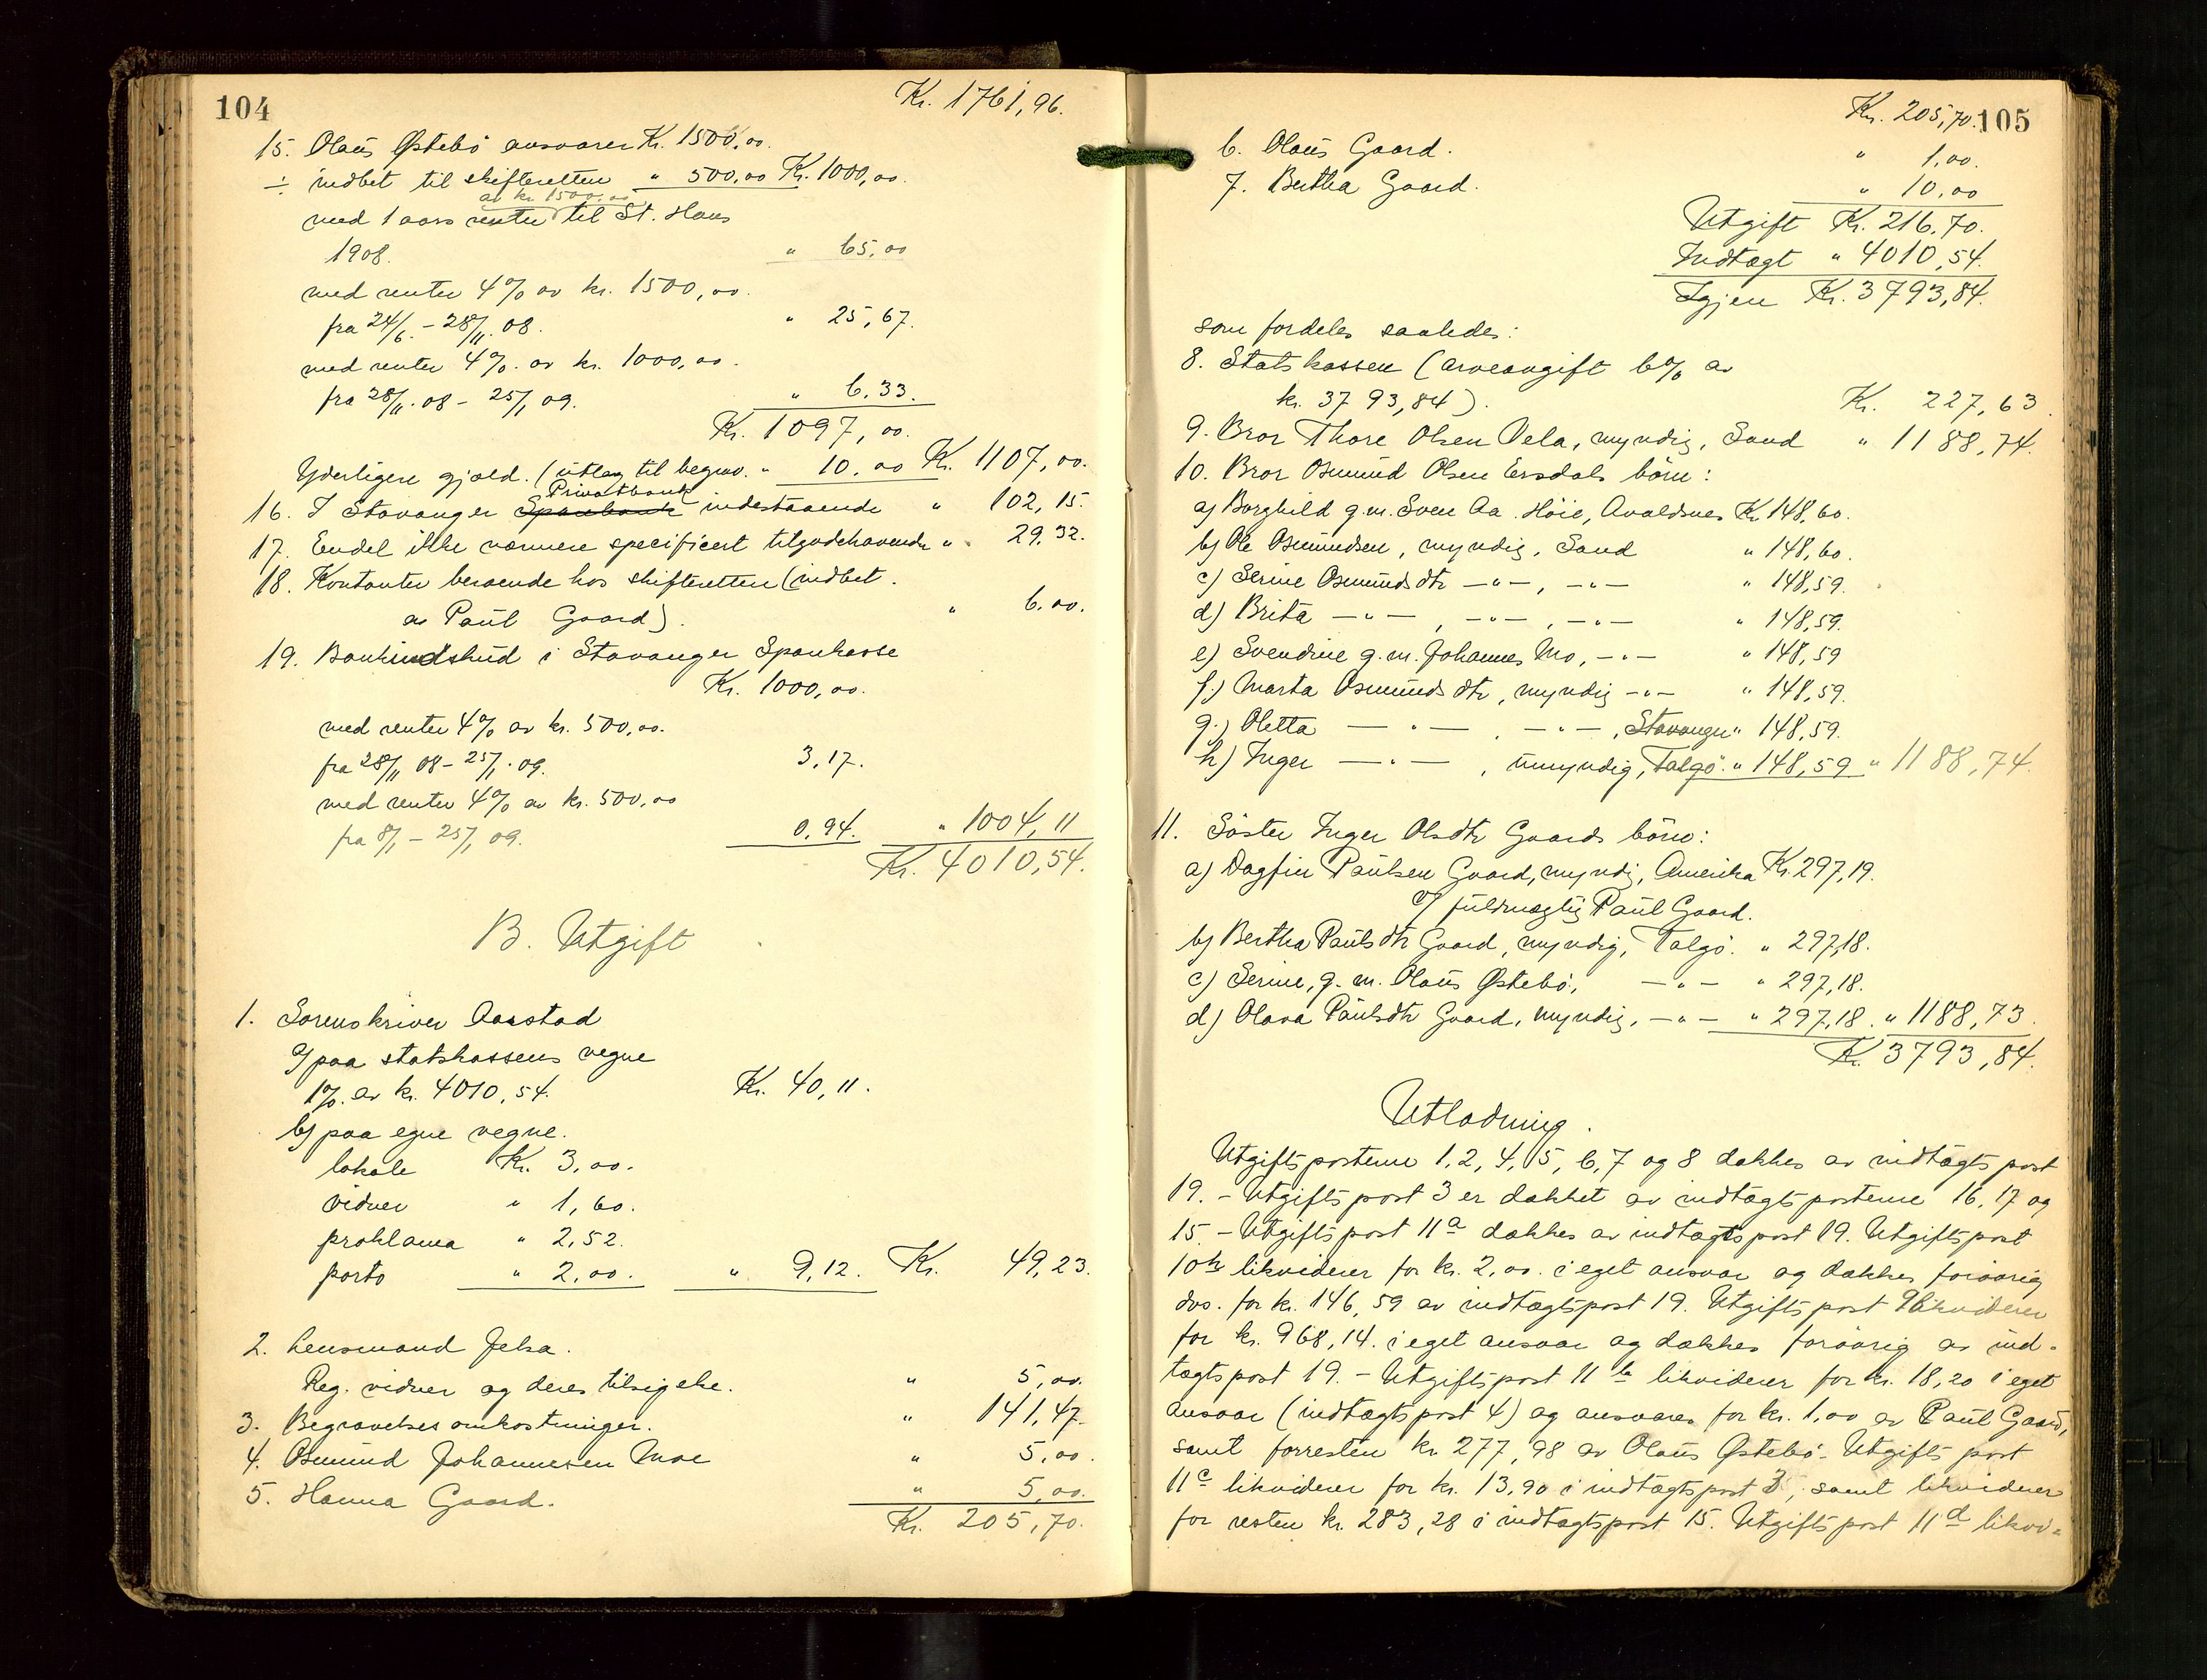 104
Kr. 1761,96.
15. Olaus Østebö ansvarer Kr. 1500,00.
÷ indbet til skifteretten " 500,00 Kr. 1000,00.
av kr. 1500,00
med 1 aars renter til St. Hans
1908. " 65,00
med renter 4% av kr. 1500,00.
fra 24/6 - 28/11 08. " 25,67.
med renter 4% av kr. 1000,00.
fra 28/11 08 - 25/1 09. " 6.33.
Kr. 1097,00.
Yderligere gjæld. (utlæg til begrav. " 10.00 Kr. 1107,00.
Privatbank
16. I Stavanger Sparebank indestaaende " 102,15.
17. Endel ikke nærmere specificert tilgodehavende " 29.32.
18. Kontanter beroende hos skifteretten (indbet.
av Paul Gaard). " 6.00.
19. Bankindskud i Stavanger Sparekasse
Kr. 1000,00.
med renter 4% av kr. 500,00.
fra 28/11 08 - 25/1 09. 3,17.
med renter 4% av kr. 500,00
fra 8/1 - 25/1 09. 0,94. " 1004,11
Kr. 4010,54.
B. Utgift
1. Sorenskriver Aarstad
a) paa statskassens vegne
1% av kr. 4010,54. Kr. 40,11.
b) paa egne vegne.
lokale Kr. 3,00.
vidner " 1,60.
proklama " 2,52.
porto " 2,00. " 9,12. Kr. 49,23.
2. Lensmand Jelsa.
Reg. vidner og deres tilsigelse. " 5,00.
3. Begravelsesomkostninger. " 141,47.
4. Osmund Johannesen Moe " 5,00.
5. Hanna Gaard. " 5,00.
Kr. 205,70.
Kr. 205,70. 105
6. Olaus Gaard. " 1,00.
7. Bertha Gaard. " 10,00
Utgift Kr. 216,70.
Indtægt " 4010,54.
Igjen Kr. 3793,84.
som fordeles saaledes:
8. Statskassen (arveavgift 6% av
kr. 3793,84). Kr. 227,63.
9. Bror Thore Olsen Vela, myndig, Sand " 1188,74.
10. Bror Osmund Olsen Ersdals börn:
a) Borghild g.m. Sven Aa. Höie, Avaldsnes Kr. 148,60.
b) Ole Osmundsen, myndig, Sand " 148,60.
c) Serine Osmundsdtr -"-, -"- " 148,59.
d) Brita -"-, -"-, -"- " 148,59.
e) Svendine g.m. Johannes Mo, -"- " 148,59
f.) Marta Osmundsdtr, myndig -"- " 148,59.
g.) Oletta -"-, -"-, Stavanger " 148,59.
h) Inger -"-, umyndig, Talgö. " 148,59 " 1188,74.
11. Söster Inger Olsdtr Gaards börn:
a) Dagfin Paulsen Gaard, myndig, Amerika Kr. 297,19.
v/ fuldmægtig Paul Gaard.
b) Bertha Paulsdtr Gaard, myndig, Talgö. " 297,18.
c) Serine, g.m. Olaus Østebö, -"- " 297,18.
d) Olava Paulsdtr Gaard, myndig, -"- " 297,18. " 1188,73.
Kr. 3793,84.
Utlodning.
Utgiftsposterne 1, 2, 4, 5, 6, 7 og 8 dækkes av indtægtspost
19. - Utgiftspost 3 er dækket av indtægtsposterne 16, 17 og
15. - Utgiftspost 11a dækkes av indtægtspost 19. Utgiftspost
10h likviderer for kr. 2,00. i eget ansvar og dækkes forövrig
dvs. for kr. 146,59 av indtægtspost 19. Utgiftspost 9 likviderer
for kr. 968,14. i eget ansvar og dækkes forövrig av ind-
tægtspost 19. - Utgiftspost 11b likviderer for kr. 18,20 i eget
ansvar (indtægtspost 4) og ansvares for kr. 1,00 av Paul Gaard,
samt forresten kr. 277,98 av Olaus Østebö. Utgiftspost
11c likviderer for kr. 13,90 i indtægtspost 3, samt likviderer
for resten kr. 283,28 i indtægtspost 15. Utgiftspost 11d likvi-